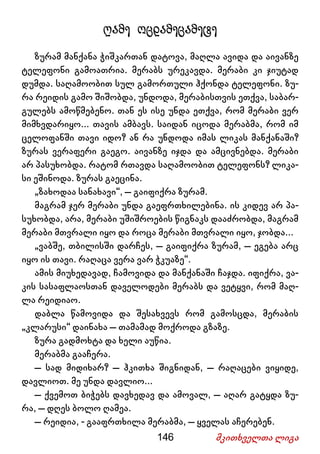 ღამე ოცდამეცამეტე
ზურამ მანქანა ჭიშკართან დატოვა, მაღლა ავიდა და აივანზე
ტელეფონი გამოათრია. მერაბს ურეკავდა. მერაბი კი ჯიუტად
დუმდა. საღამოობით სულ გამორთული ჰქონდა ტელეფონი. ზუ-
რა რეიდის გამო შიშობდა, უნდოდა, მერაბისთვის ეთქვა, საბარ-
გულებს ამოწმებენო. თან ეს ისე უნდა ეთქვა, რომ მერაბი ვერ
მიმხვდარიყო... თავის ამბავს. საიდან იცოდა მერაბმა, რომ იმ
ცელოფანში თავი იდო? ან რა უნდოდა იმას ლიკას მანქანაში?
ზურას ვერაფერი გაეგო. აივანზე იჯდა და ამცივნებდა. მერაბი
არ პასუხობდა. რატომ რთავდა საღამოობით ტელეფონს? ლიკა-
სი ეშინოდა. ზურას გაეცინა.
„ზახოდაა სანახავი“, — გაიფიქრა ზურამ.
მაგრამ ჯერ მერაბი უნდა გაეფრთხილებინა. ის კიდევ არ პა-
სუხობდა, არა, მერაბი უშიშროების წიგნაკს დააძრობდა, მაგრამ
მერაბი მთვრალი იყო და როცა მერაბი მთვრალი იყო, ჯობდა...
„ვაბშე, თბილისში დარჩეს, — გაიფიქრა ზურამ, — ეგება არც
იყო ის თავი. რაღაცა ვერა ვარ ჭკუაზე“.
ამის მიუხედავად, ჩამოვიდა და მანქანაში ჩაჯდა. იფიქრა, ვა-
კის სასაფლაოსთან დაველოდები მერაბს და ვეტყვი, რომ მაღ-
ლა რეიდიაო.
დაბლა წამოვიდა და შესახვევს რომ გამოსცდა, მერაბის
„კლარუსი“ დაინახა — თამამად მოქროდა გზაზე.
ზურა გადმოხტა და ხელი აუწია.
მერაბმა გააჩერა.
— სად მიდიხარ? — ჰკითხა შიგნიდან, — რაღაცები ვიყიდე,
დავლიოთ. მე უნდა დავლიო...
— ქვემოთ ბიჭებს დავხედავ და ამოვალ, — აღარ გატყდა ზუ-
რა, — დღეს ბოლო ღამეა.
— რეიდია, - გააფრთხილა მერაბმა, — ყველას აჩერებენ.
146 მკითხველთა ლიგა